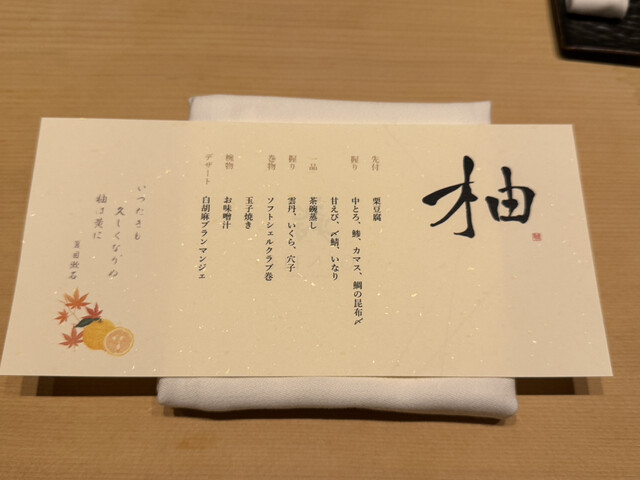 柚
先付 栗豆腐
握り 中とろ、鯵、カマス、鯛の昆布〆
甘えび、〆鯖、いなり
一品 茶碗蒸し
握り 雲丹、いくら、穴子
巻物 ソフトシェルクラブ巻
玉子焼き
椀物 お味噌汁
デザート 白胡麻ブランマンジェ
いつたきも
久しくなりぬ
柚は黄に
夏目漱石